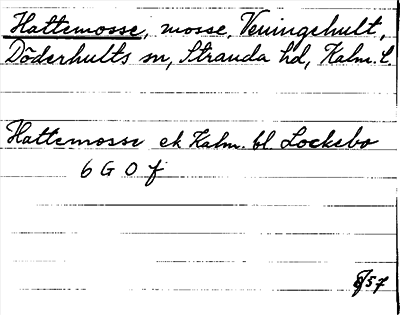 Hattemosse, mosse, Veningehult,
Döderhults sn, Stranda hd, Kalm. l.
Hattemosse ek Kalm. bl. Lockebo
6 G O f
57